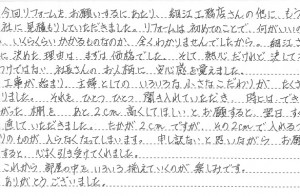 今回リフォームをお願いするにあたり、細江工務店さんの他に、もう
社に見積もりしていただきました。リフォームは初めてのことで、何がいいの
、いくらくらいかかるものなのか、全くわかりませんでしたから。細江さ
に決めた理由は、まずは価格でした。そして、熱心だけれど決して
つけではない社長さんのお人柄に安心感を覚えました。
工事が始まり、主婦としてのいろいろな小さなこだわりがたく
ました。それを、ひとつひとつ聞き入れていただき、時には、でき
がった棚をあと2cm高くしてほしいとお願いすると、翌日す
直していただきました。たかが2cmですが、その2cmで入れるつ
りのものが入らなくなってしまいます。申し訳ないと思いながらお願
すると、心よく引き受けてくれました。
これから部屋の中をいろいろ揃えていくのが楽しみです。
ありがとうございました。